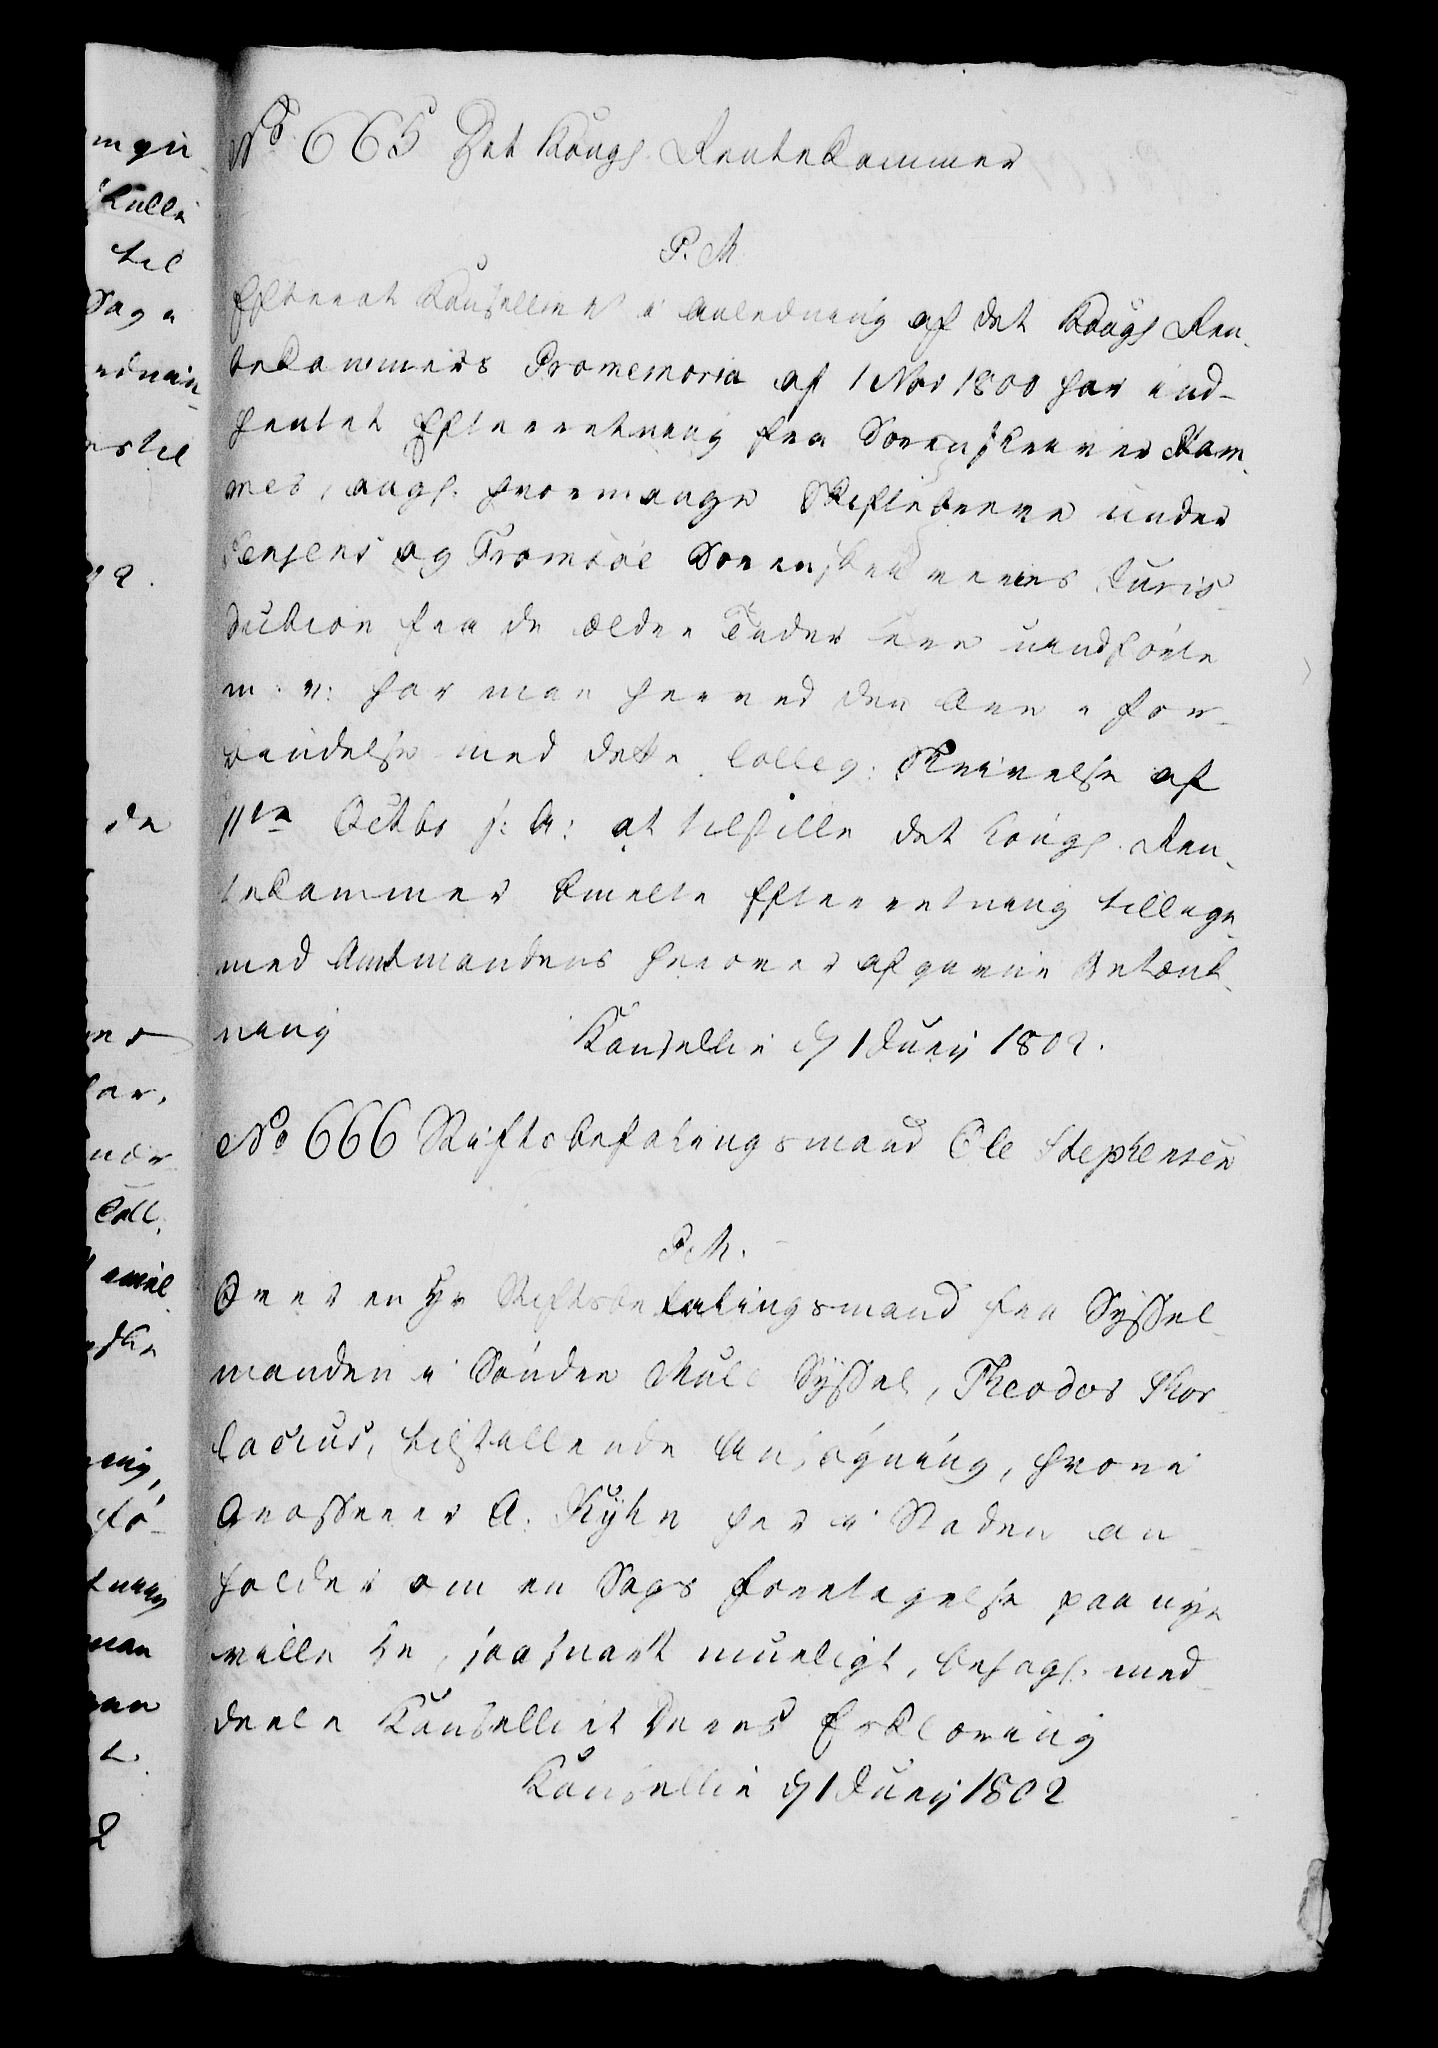 No 665 Det Kongl. Rentekammer
P. M.
Efterat Kancelliet i Anledning af det Kongl Ren-
tekammers Promemoria af 1 Nov 1800 har ind-
hentet Efterretning fra Sorenskriver Kam-
mer, angl. hvormange Skiftebreve under
Senjens og Tromsöe Sorenskriveries Juris-
diction fra de ældre Tider ere uindförte
m. v: har man herved den Ære i For-
bindelse med dette Colleg: Skrivelse af
11te Octbr f: A: at tilstille det Kongl. Ren-
tekammer bmelte Efterretning tillige
med Amtmandens herover afgivne Betænk-
ning
Kancellie d 1 Junij 1802.
No 666 Stiftsbefalingsmand Ole Stephensen
P. M.
Over en Hr Stiftsbefalingsmand fra Syssel-
manden i Sönder Mule Syssel, Theodor Thor-
lacius, tilstillende Ansögning, hvori
Grosserer A. Kyhn her i Staden an-
holder om en Sags Foretagelse paa nye
ville De, saasnart mueligt, behagl. med-
deele Kancelliet Deres Erklæring
Kancellie d 1 Junij 1802